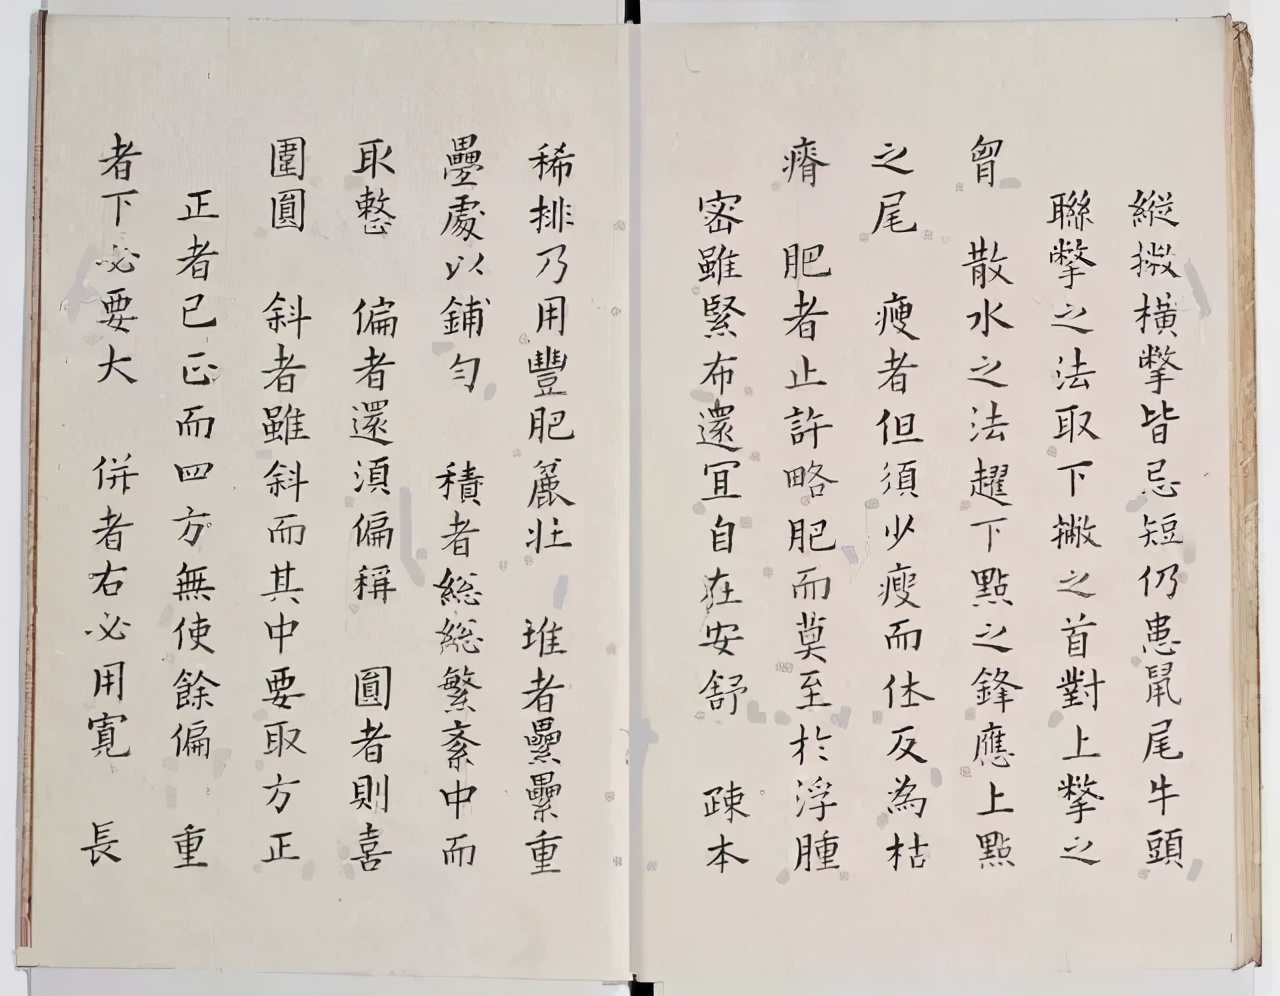 縱撇橫撆皆忌短仍患鼠尾牛頭
聯撆之法取下撇之首對上撆之
胷 散水之法趯下點之鋒應上點
之尾 瘦者但須少瘦而体反為枯
瘠 肥者止許略肥而莫至於浮腫
密雖緊布還冝自在安舒 疎本
稀排乃用豐肥麄壯 堆者纍纍重
疊處以鋪勻 積者総総繁紊中而
取整 偏者還湏偏稱 圓者則喜
圍圓 斜者雖斜而其中要取方正
正者已正而四方無使餘偏 重
者下必要大 併者右必用寛 長